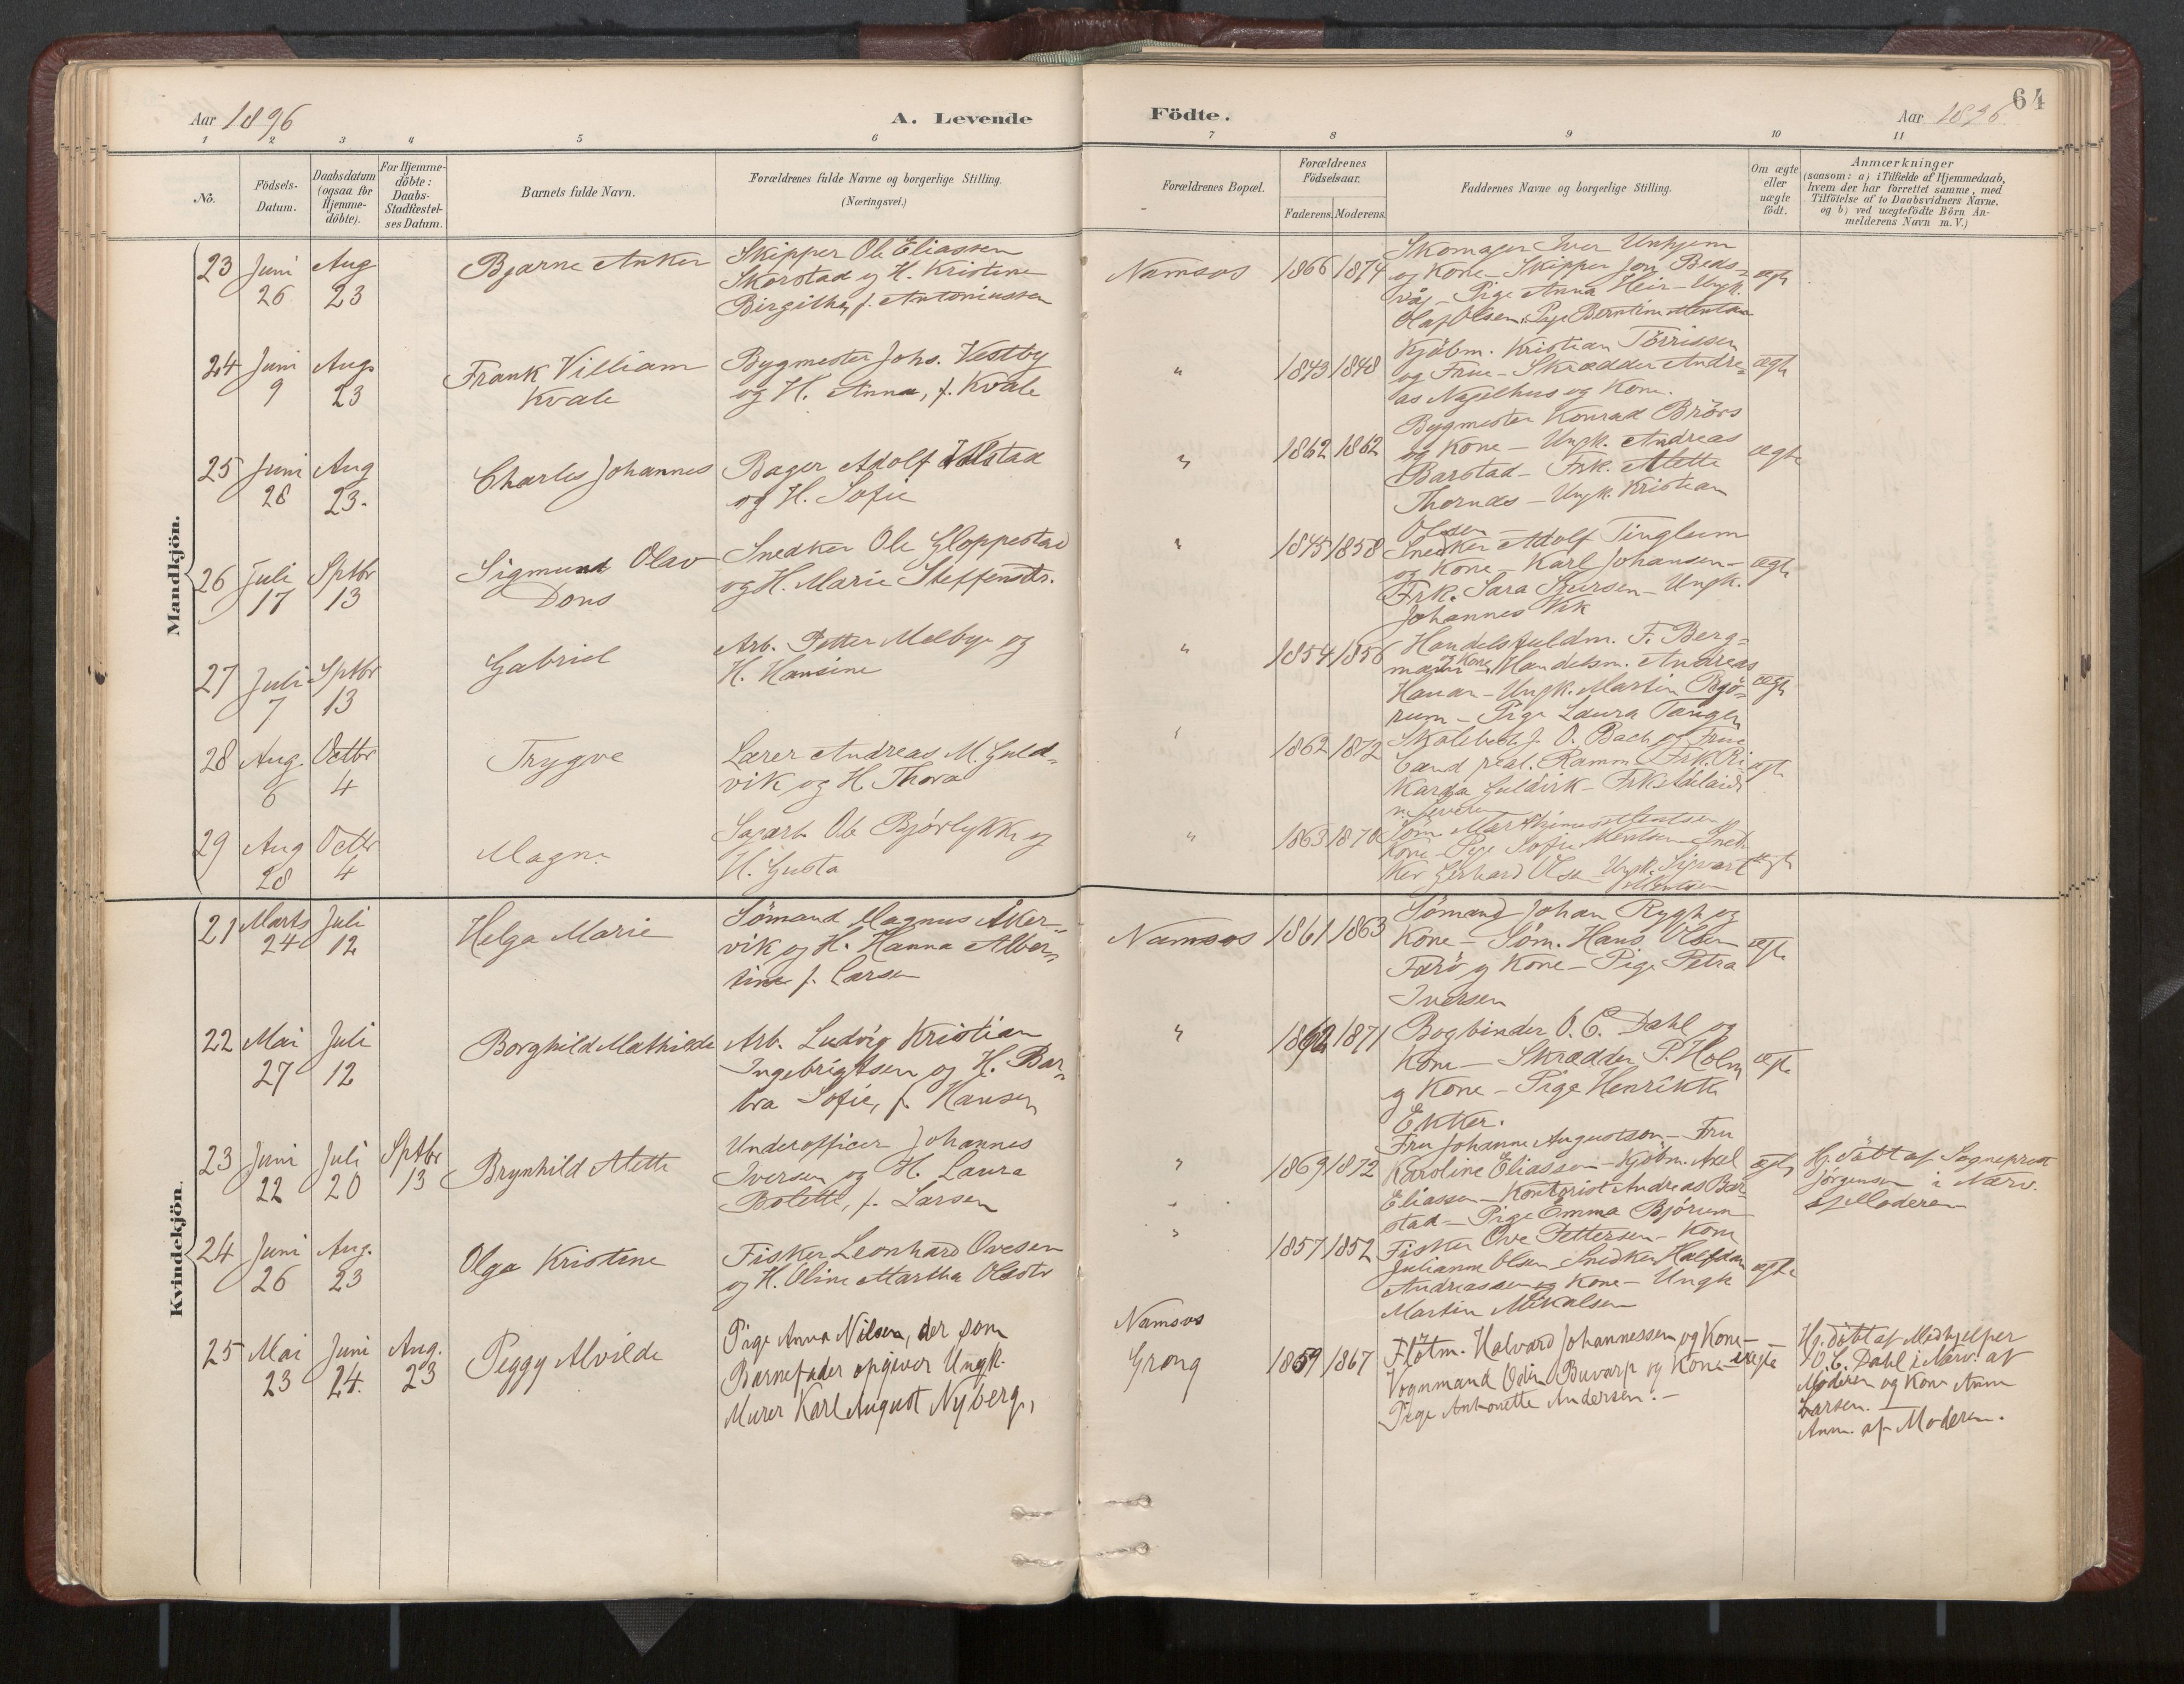 64
Aar 1896
A. Levende
Födte.
Aar 1896
1 2 3 4 5 6 7 8 9 10 11
No.
Födsels-
Datum.
Daabsdatum
(ogsaa for
Hjemme-
döbte).
For Hjemme-
döbte:
Daabs-
Stadfæstel-
ses Datum.
Barnets fulde Navn.
Forældrenes fulde Navne og borgerlige Stilling.
(Næringsvei.)
Forældrenes Bopæl.
Forældrenes
Födselsaar.
Faderens. Moderens.
Faddernes Navne og borgerlige Stilling.
Om ægte
eller
uægte
födt.
Anmærkninger
(saasom: a) i Tilfælde af Hjemmedaab,
hvem der har forrettet samme, med
Tilföielse af to Daabsvidners Navne.
og b) ved uægtefödte Börn An-
melderens Navn m.V.)
Mandkjön.
23 Juni 26 Aug 23
Bjarne Anker
Skipper Ole Eliassen
Skorstad og H. Kristine
Birgitha, f. Antoniussen
Namsos 1866 1874
Skomager Iver Unhjem
og Kone - Skipper Jon Beds-
våg - Pige Anna Heir - Ungk.
Olaf Olsen, Pige Berntine
ægte
24 Juni 9 Aug. 23
Frank Villiam
Kvale
Bygmester Johs. Vestby
og H. Anna, f. Kvale
" 1843 1848
Kjöbm. Kristian Törrissen
og Frue - Skrædder Andre-
as Nagelhus og Kone.
ægte
25 Juni 28 Aug 23.
Charles Johannes
Bager Adolf
og H. Sofie
" 1862 1862
Bygmester Konrad Brörs
og Kone - Ungk. Andreas
Barstad - Frk. Alette
Thornæs - Ungk. Kristian
Olsen
ægte
26 Juli 17 Sptbr 13
Sigmund Olav
Dons
Snedker Ole Gloppestad
og H. Marie Steffensdr.
" 1845 1858
Snedker Adolf Tinglum
og Kone - Karl Johansen -
Frk. Sara Sivertsen - Ungk.
Johannes Vik
ægte
27 Juli 7 Sptbr 13
Gabriel
Arb. Petter Melby og
H. Hansine
" 1854 1856
Handelsfuldm. F. Berg-
mann og Kone, Handelsm. Andreas
Hanan - Ungk. Martin Bjö-
rum - Pige Laura Tangen
ægte
28 Aug. 6 Octbr 4
Trygve
Lærer Andreas M. Guld-
vik og H. Thora
" 1862 1872
Skolebest. J. O. Bach og Frue
Cand real. Ramm Frk. Ri-
karda Guldvik - Frk. Adelaide
ægte
29 Aug 28 Octbr 4
Magne
Sagarb. Ole Bjørlykke og
H. Gusta
" 1863 1870
Söm. Marthinus Mentsen
Kone - Pige Sofie Mentsen Sned-
ker Gerhard Olsen Ungk. Sigvart
Mentsen
ægte
Kvindekjön.
21 Marts 24 Juli 12
Helga Marie
Sömand Magnus Aker-
vik og H. Hanna Alber-
tine f. Larsen
Namsos 1861 1863
Sömand Johan Rygh og
Kone - Söm. Hans Olsen
Færö og Kone - Pige Petra
Iversen
ægte
22 Mai 27 Juli 12
Borghild Mathilde
Arb. Ludvig Kristian
Ingebrigtsen og H. Bar-
bra Sofie, f. Hansen
" 1862 1871
Bogbinder O. C. Dahl og
Kone - Skrædder P. Holm
og Kone - Pige Henrikke
Ekker.
ægte
23 Juni 22 Juli 20 Sptbr 13
Brynhild Alette
Underofficer Johannes
Iversen og H. Laura
Bolette, f. Larsen
" 1869 1872
Fru Johanne Augustson - Fru
Karoline Eliassen - Kjöbm. Axel
Eliassen - Kontorist Andreas Bar-
stad - Pige Emma Bjørum
ægte
Hj. döbt af Sogneprest
Jörgensen i Nærv.
af Moderen
24 Juni 26 Aug. 23
Olga Kristine
Fisker Leonhard Ovesen
og H. Oline Martha Olsdtr
" 1857 1852
Fisker Ove Pettersen - Kone
Julianne Olsen - Snedker Halfdan
Andreassen og Kone - Ungk
Martin Mikalsen
ægte
25 Mai 23 Juni 24. Aug. 23
Peggy Alvilde
Pige Anna Nilsen, der som
Barnefader opgiver Ungk.
Murer Karl August Nyberg,
Namsos
Grong 1859 1867
Flötm. Halvard Johannessen og Kone -
Vognmand Odin Buvarp og Kone -
Pige Antonette Andersen. -
uægte
Hj. döbt af Medhjelper
O. C. Dahl i Nærv. af
Moderen og Kone Anne
Larsen.
Anm. af Moderen.